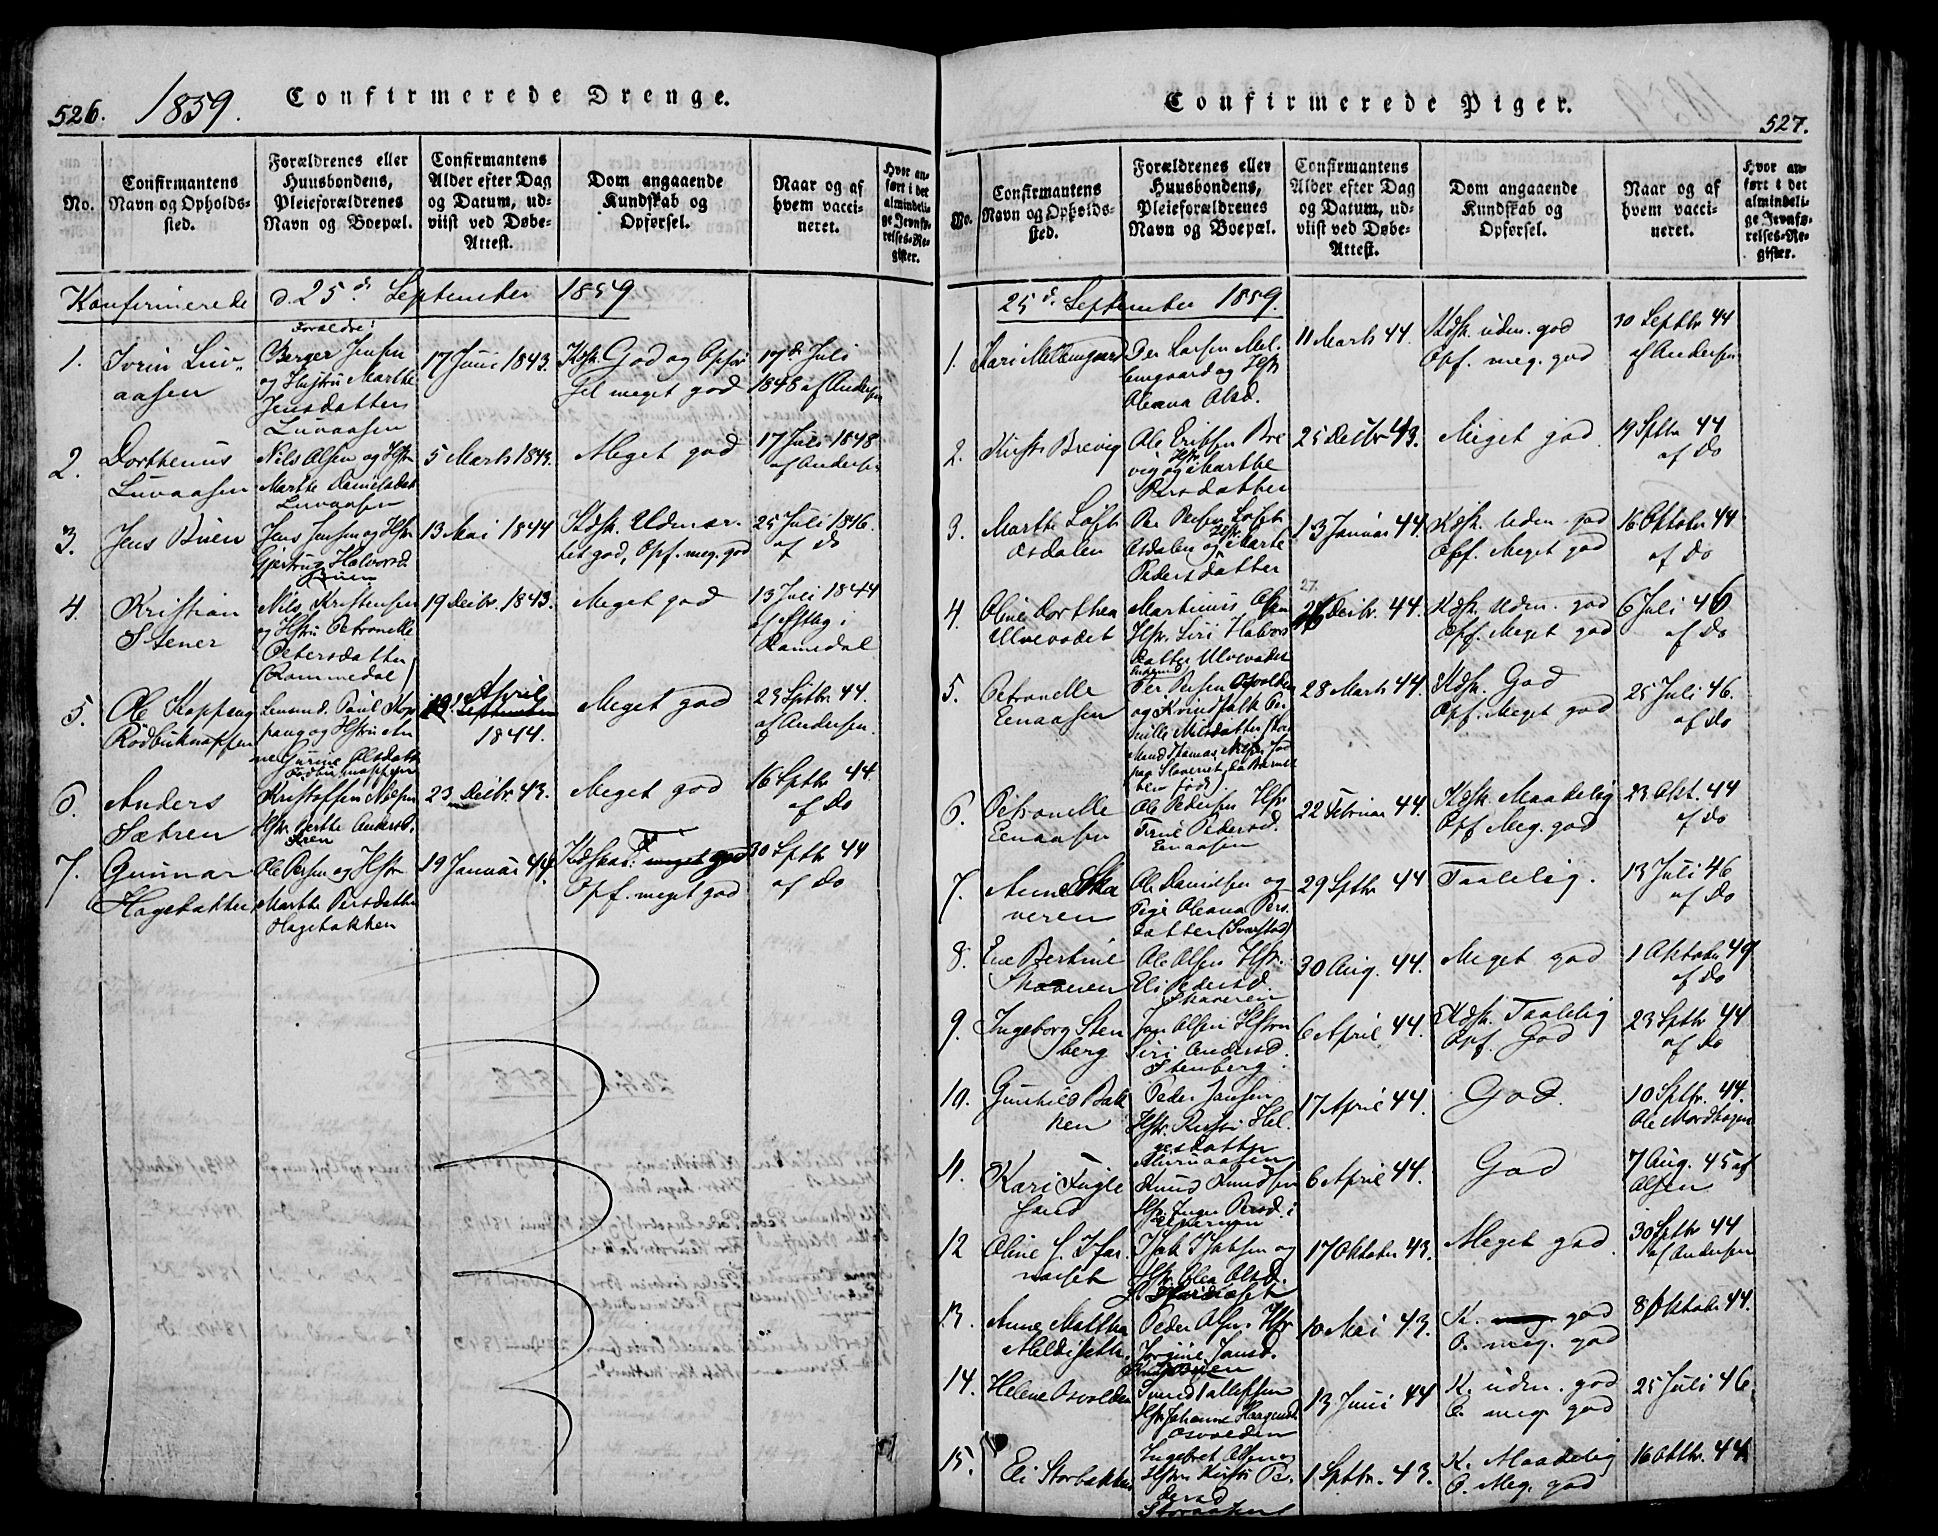 526. 1859. Confirmerede Drenge.
No.
Confirmantens Navn og Opholdssted.
Forældrenes eller Huusbondens, Pleieforældrenes Navn og Boepæl.
Confirmantens Alder efter Dag og Datum, udviist ved Døbe-Attest.
Dom angaaende Kundskab og Opførsel.
Naar og af hvem vaccineret.
Hvor anført i det almindelige Jevnførelses-Register.
Konfirmerede d. 25d. September 1859
Forældre:
1.
Luvaasen
Berger Jensen
og Hustru Marthe
Jensdatter
Luvaasen
17 Juni 1843.
Kdsk. God og Opførsel meget god
17de Juli
1848 af Andersen
2.
Dorthenus
Luvaasen
Nils Olsen og Hstr.
Marthe Danielsdat
Luvaasen
5 Marts 1843.
Meget god
17 Juli 1848
af Andersen
3.
Jens Buen
Jens Jensen og Hstr.
Gjertrug Halvorsd.
Buen
13 Mai 1844
Kdsk. Udmærket god, Opf. meg. god
25 Juli 1846.
af Do
4.
Kristian
Stener
Nils Kristensen
og Hstru Petronelle
Petersdatter
(Rammedal)
19 Decbr. 1843.
Meget god
13 Juli 1844
Ramedal
5.
Ole Koppang
Rødbuknappen
Paul Koppang og Hstru Anne Gurine Olsdatter
19. April
1844.
Meget god
23 Sptbr 44.
af Andersen.
6.
Anders
Sætren
Kristoffen Nilsen
Hstr. Berthe Andersd.
23 Decbr. 43.
Meget god
16 Sptbr 44
af Do
7.
Gunnar
Hagebakken
Ole Persen og Hstr.
Marthe Persdatter
Hagebakken
19 Januar 44.
Opf. meget god
30 Sptbr 44
af Do
Confirmerede Piger. 527.
No.
Confirmantens Navn og Opholdssted.
Forældrenes eller Huusbondens, Pleieforældrenes Navn og Boepæl.
Confirmantens Alder efter Dag og Datum, udviist ved Døbe-Attest.
Dom angaaende Kundskab og Opførsel.
Naar og af hvem vaccineret.
Hvor anført i det almindelige Jevnførelses-Register.
25d. September 1859.
1.
Kari Mellemgaard
Per Larsen Mellemgaard og Hstr
Oleana Olsd.
11 Marts 44.
Kdsk. udm. god
Opf. meg. god
30 Septbr 44
af Andersen
2.
Kirsti Brevig
Ole Eriksen Brevig og Hstr. Marthe
Persdatter
25 Decbr 43.
Meget god
19 Sptbr 44
af Do
3.
Marthe Løftesdalen
Per Persen Løftesdalen og Hstr. Marte
Pedersdatter
13 Januar 44.
Kdsk. Udm. god
Opf. Meget god
16 Oktober 44.
af Do
4.
Oline Dorthea
Ulvevadet
Martinus Olsen
Hstr. Siri Halvorsdatter Ulvevadet
27
Decbr. 44.
Kdsk. Udm. god
Opf. Meget god
6 Juli 46
af Do
5.
Petronelle
Eenaasen
Per Persen Osvolden
og Kvindfolk Pernille Nilsdatter
28 Marts 44.
Kdsk. God
Opf. Meget god
25 Juli 46.
af Do
6.
Petronelle
Eenaasen
Ole Pedersen Hstr
Pedersd.
Eenaasen
22 Februar 44.
Kdsk. Maadelig
Opf. Meg. god
23 Okt. 44
af Do
7.
Anne Skaveren
Ole Danielsen og
Pige Oleana Persdatter
29 Sptbr 44
Taalelig.
13 Juli 46
af Do
8.
Ene Bertine
Skaveren
Ole Olsen Hstr.
Eli Pedersd.
Skaveren
30 Aug. 44.
Meget god
1 Oktober 49
af Do
9.
Ingeborg Stenberg
Jon Olsen Hstru
Siri Andersd.
Stenberg.
6 April 44.
Kdsk. Taalelig
Opf. God
23 Sptbr 44
af Do
10.
Gunhild Bakken
Peder Jansen
Hstr. Kirsti Helgesdatter
17 April 44.
God.
10 Sptbr. 44.
Ole Mordhagen
11.
Kari Fuglesand
Knud Knudsen
Hstr. Inger Persd. i
6 April 44.
God
7 Aug. 45 af
Olsen
12
Isak Isaksen og
Hstr. Olea Olsd.
17 Oktober 43.
Meget god.
30 Sptbr 44
af Andersen
13.
Anne Marthea
Peder Olsen Hstr
Jorgine Jansd.
10 Mai 43.
K. god
O. meg. god
8 Oktober 44.
14.
Helene Osvolden
Hstr Johanne Haagensd.
Osvolden
13 Juni 44
K. udm. god
O. meg. god
25 Juli 46
15.
Eli Storbakken
Ingebret Olsen og
Hstru Kirsti Pedersd
1 Sptbr. 43.
K. Maadelig
O. Meg. god
16 Oktbr. 44